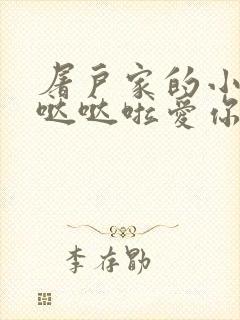 屠户家的小
哒哒啦爱你
李存勖